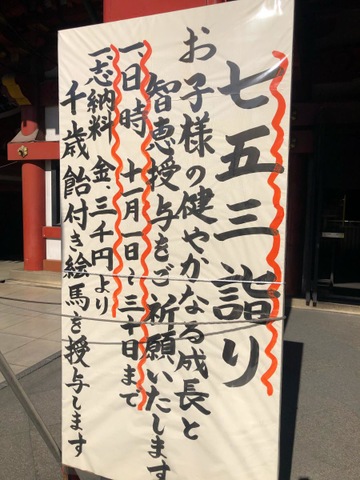 七五三詣り
お子様の健やかなる成長と
智恵授与をご祈願いたします
一、日時 十一月一日〜三十日まで
一、志納料 金、三千円より
千歳飴付き絵馬を授与します